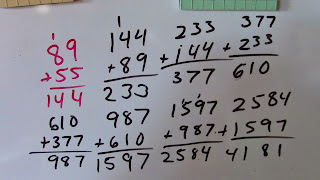 1
89
+55
144
1
144
+89
233
233
+144
377
377
+233
610
610
+377
987
987
+610
1597
1597
+987
2584
2584
+1597
4181